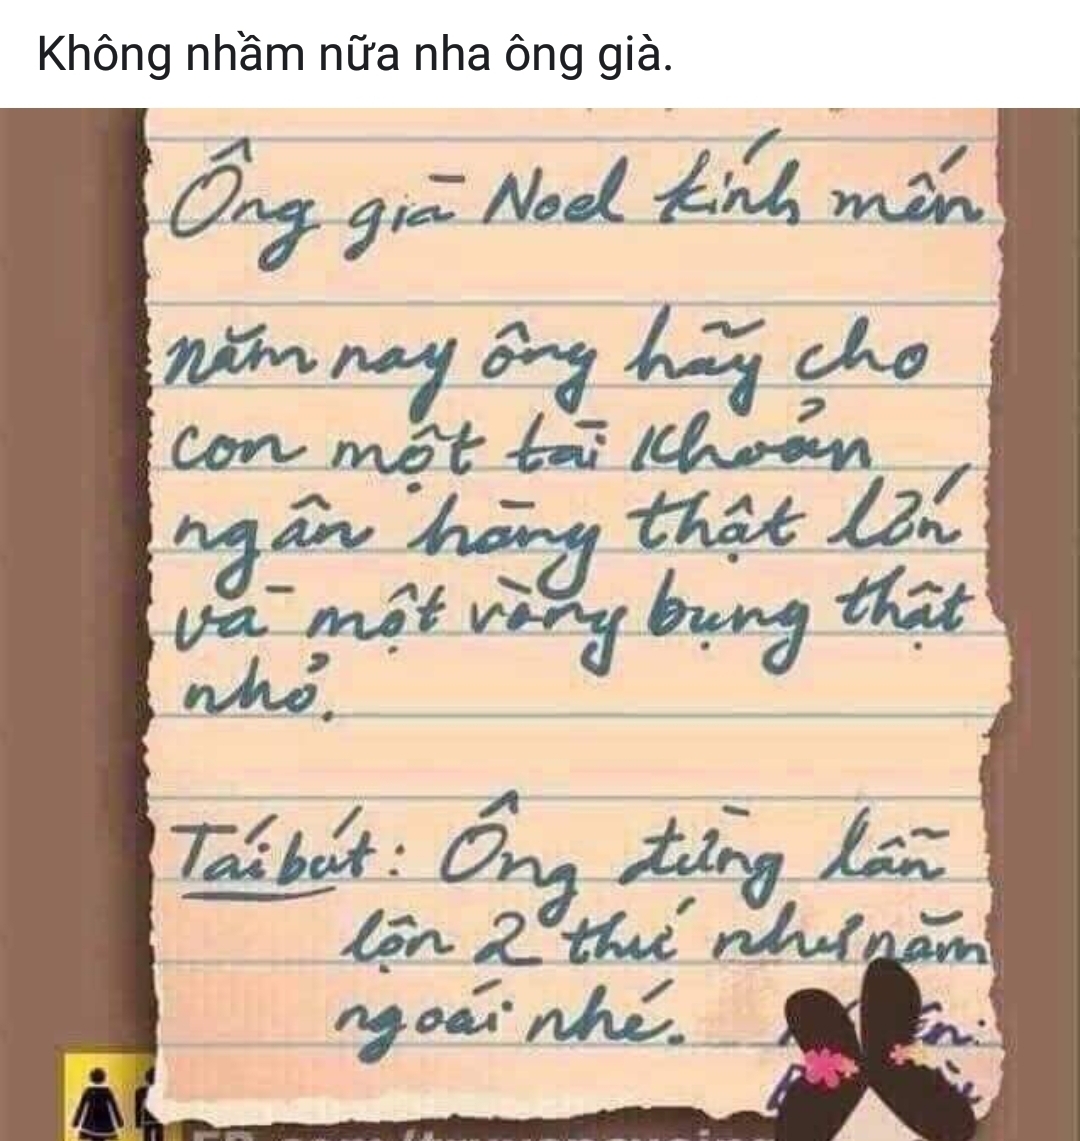 Không nhầm nữa nha ông già.
Ông già Noel kính mến
năm nay ông hãy cho
con một tài khoản
ngân hàng thật lớn
và một vòng bụng thật
nhỏ.
Tái bút: Ông đừng lẫn
lộn 2 thứ như năm
ngoái nhé.